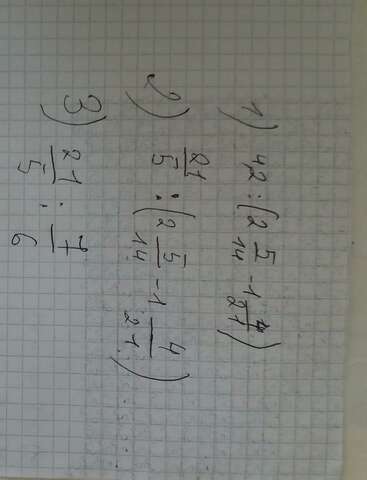 1) 4,2 : (2 5/14 - 1 4/21)
2) 21/5 : (2 5/14 - 1 4/21)
3) 21/5 : 7/6